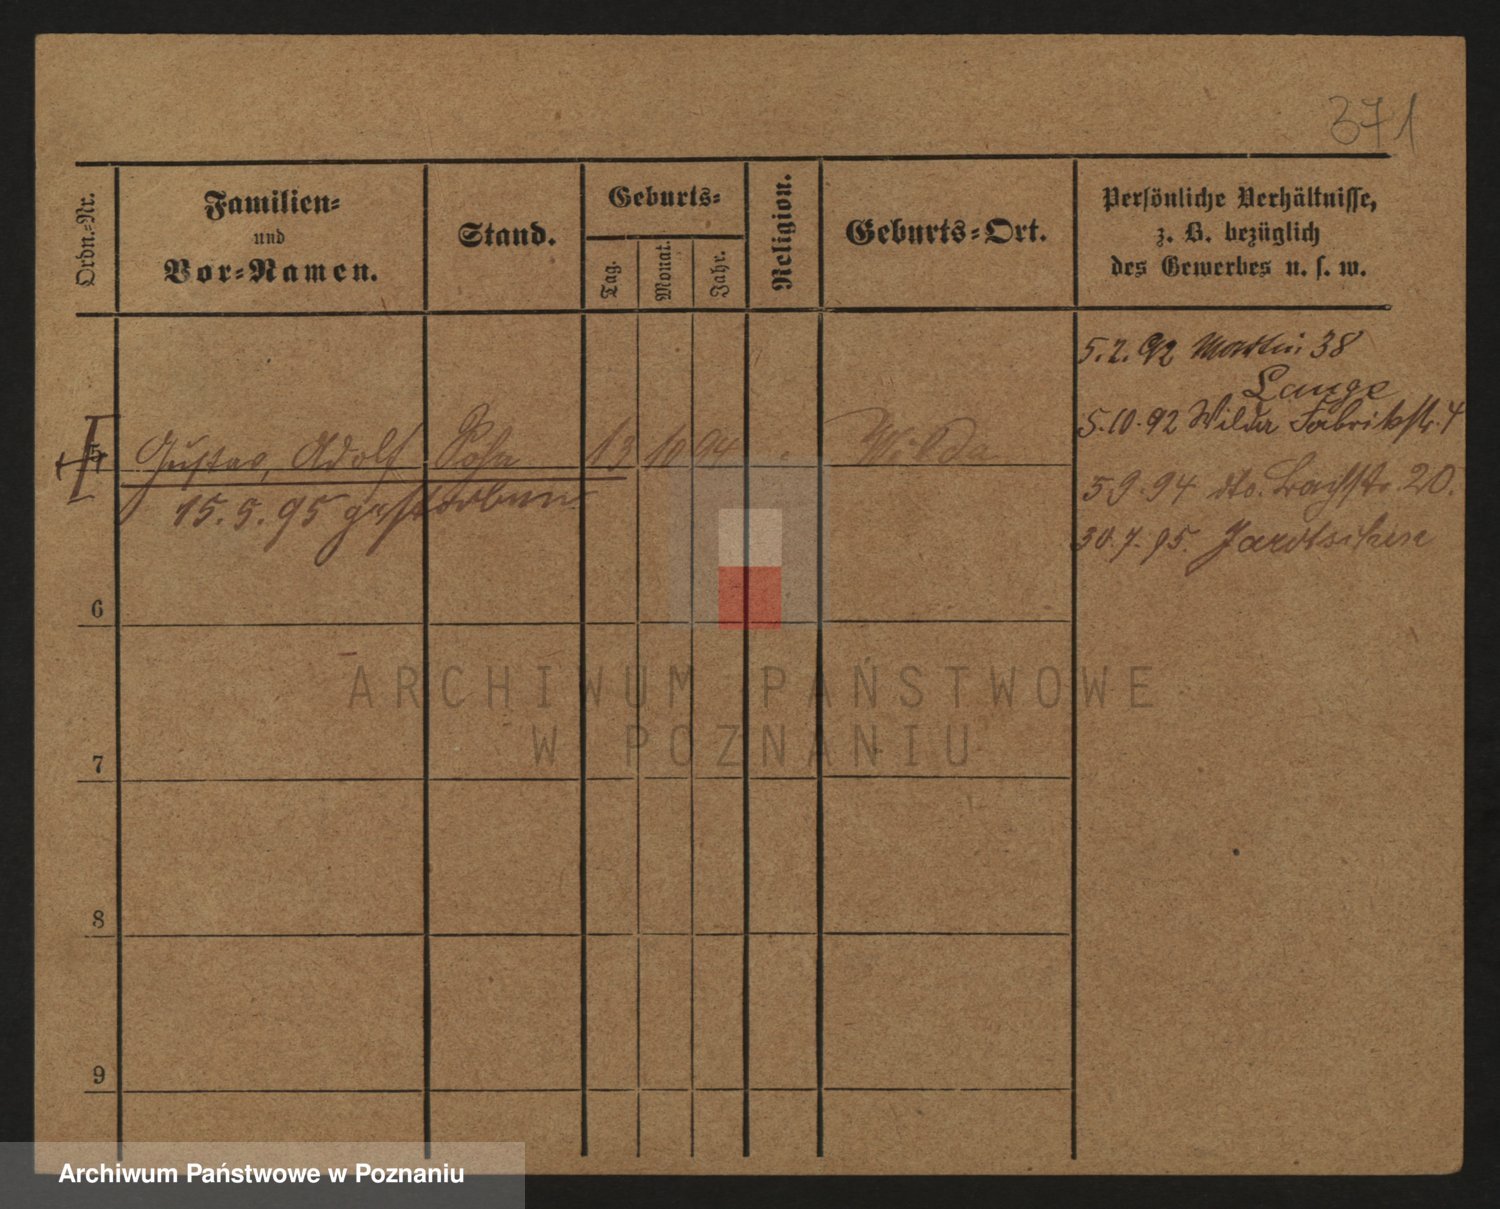 371
Ordn.-Nr.
Familien-
und
Vor-Namen.
Stand.
Geburts-
Tag.
Monat.
Jahr.
Religion.
Geburts-Ort.
Persönliche Verhältnisse,
z. B. bezüglich
des Gewerbes u. s. w.
5.2.92 Martin 38
Lange
5.10.92 Wilda Fabrikstr. 4
5 Gustav, Adolf Sohn 13 10 94 Wilda
15.5.95 gestorben
5.9.94 dto. Bachstr. 20.
30.7.95. Jarotschin
6
7
8
9
ARCHIWUM PAŃSTWOWE
W POZNANIU
Archiwum Państwowe w Poznaniu